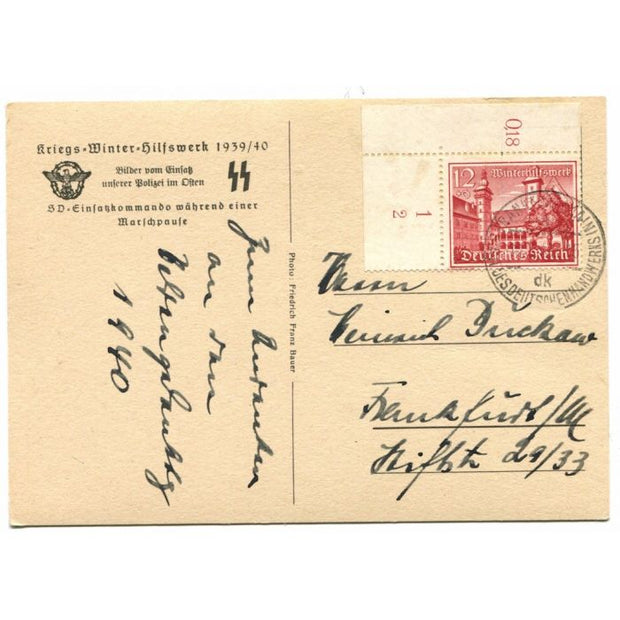 Kriegs=Winter=Hilfswerk 1939/40
Bilder vom Einsatz
unserer Polizei im Osten
SD=Einsatzkommando während einer
Marschpause
Zum Andenken
an den
1940
Photo: Friedrich Franz Bauer
0,18
1
2
12
Winterhilfswerk
Deutsches Reich
DES DEUTSCHEN HANDWERKS
dk
Herrn
Heinrich
Frankfurt/M
29/33